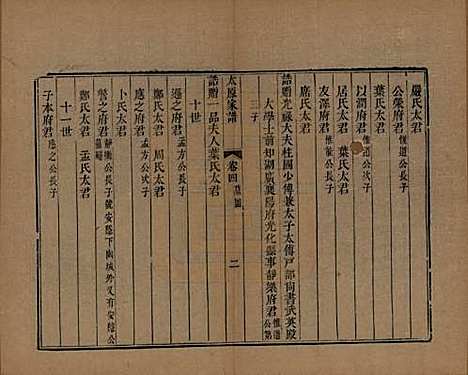 嚴氏太君
公榮府君 惟道公長子
葉氏太君
以潤府君 惟道公次子
居氏太君 葉氏太君
友澤府君 公長子
席氏太君
誥贈光祿大夫柱國少傅兼太子太傅戶部尚書武英殿
大學士前知湖廣襄陽府光化縣事靜樂府君 惟道公第
三子
太原家譜 卷四 墓圖 二
誥贈一品夫人葉氏太君
十世
遜之府君 孟方公長子
鄭氏太君 周氏太君
應之府君 孟方公次子
卜氏太君
之府君 靜樂公長子號安隱下 城外又有安隱公
鄭氏太君 孟氏太君
十一世
子本府君 應之公長子